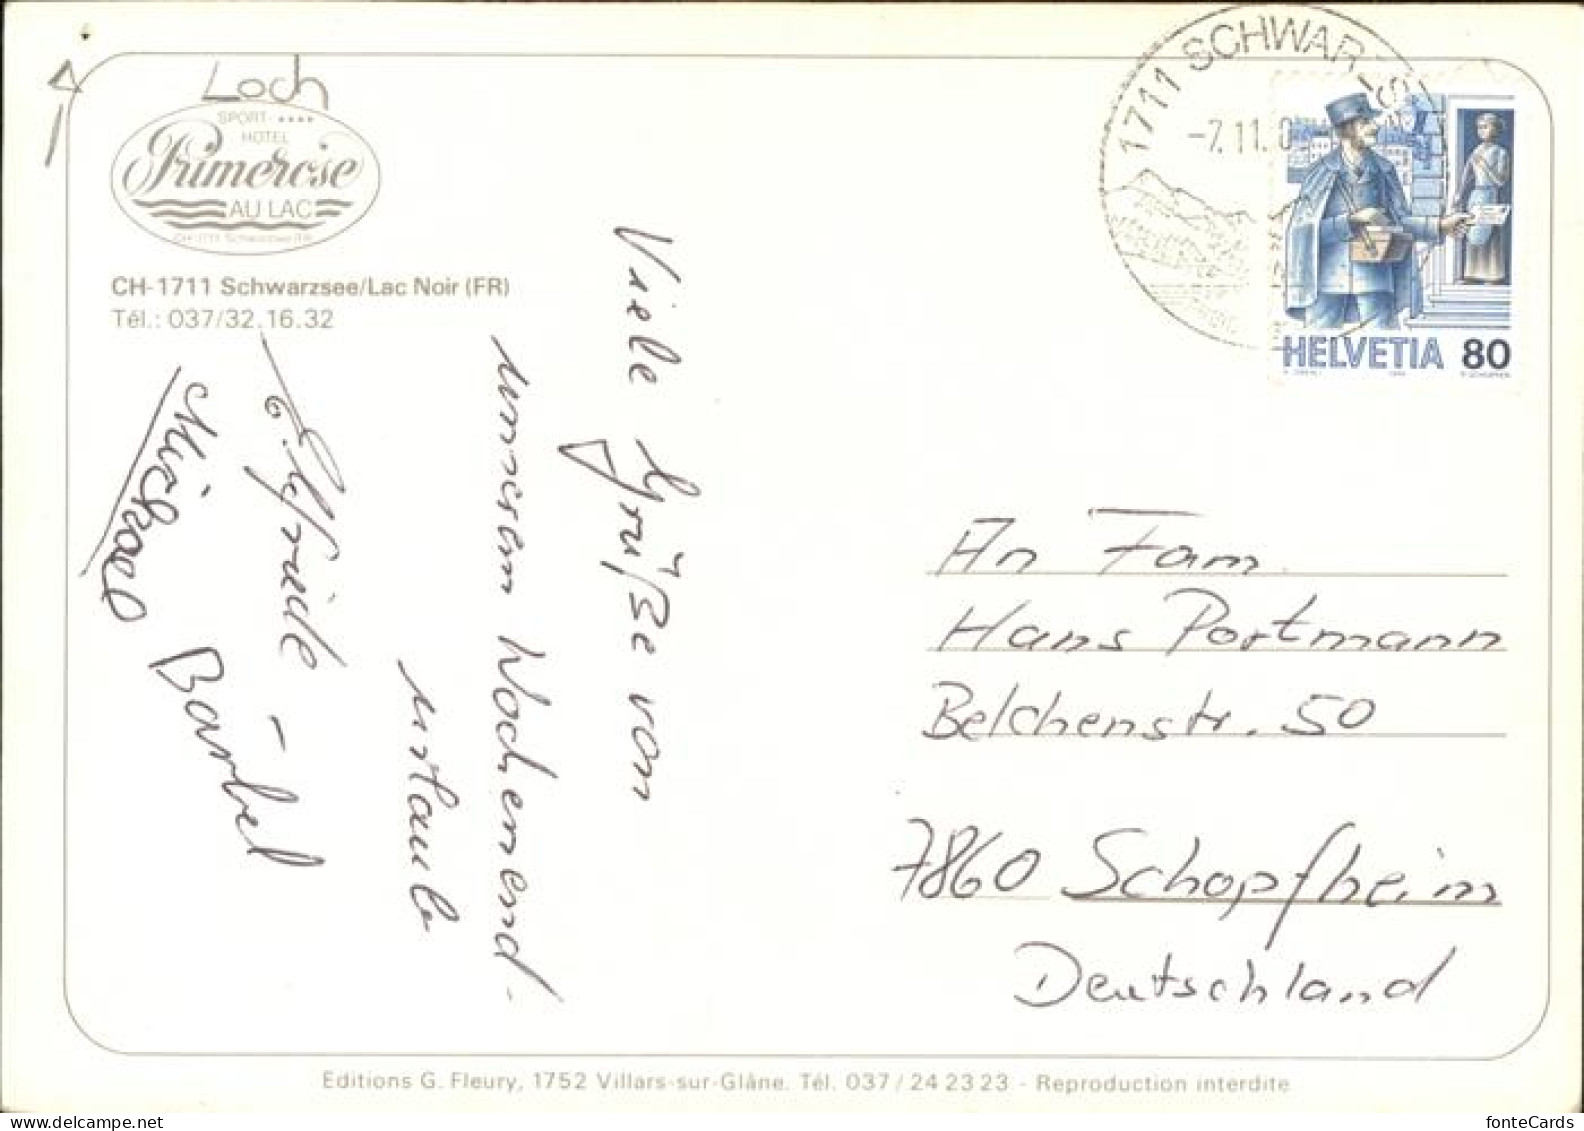 Loch
SPORT-****
HOTEL
Primerose
AU LAC
CH-1711 Schwarzsee (FR)
CH-1711 Schwarzsee/Lac Noir (FR)
Tél.: 037/32.16.32
Viele Grüße von
unserem Wochenend-
urlaub
E. Elfriede -
Michael Bärbel
1711 SCHWARZS
-7.11.0
HELVETIA 80
An Fam.
Hans Portmann
Belchenstr. 50
7860 Schopfheim
Deutschland
Editions G. Fleury, 1752 Villars-sur-Glâne. Tél. 037/24 23 23 - Reproduction interdite
delcampe.net
fonteCards